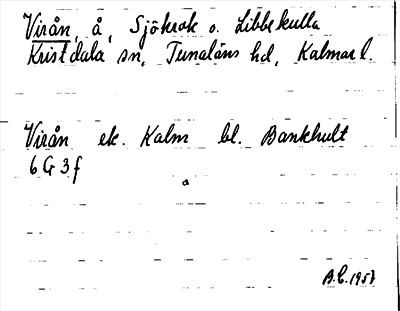 Virån, å, Sjökrok o. Libbekulla
Kristdala sn, Tunaläns hd, Kalmar l.
Virån ek. Kalm bl. Bankhult
6 G 3 f